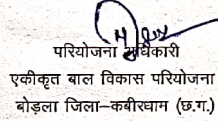 परियोजना अधिकारी
एकीकृत बाल विकास परियोजना
बोड़ला जिला–कबीरधाम (छ.ग.)